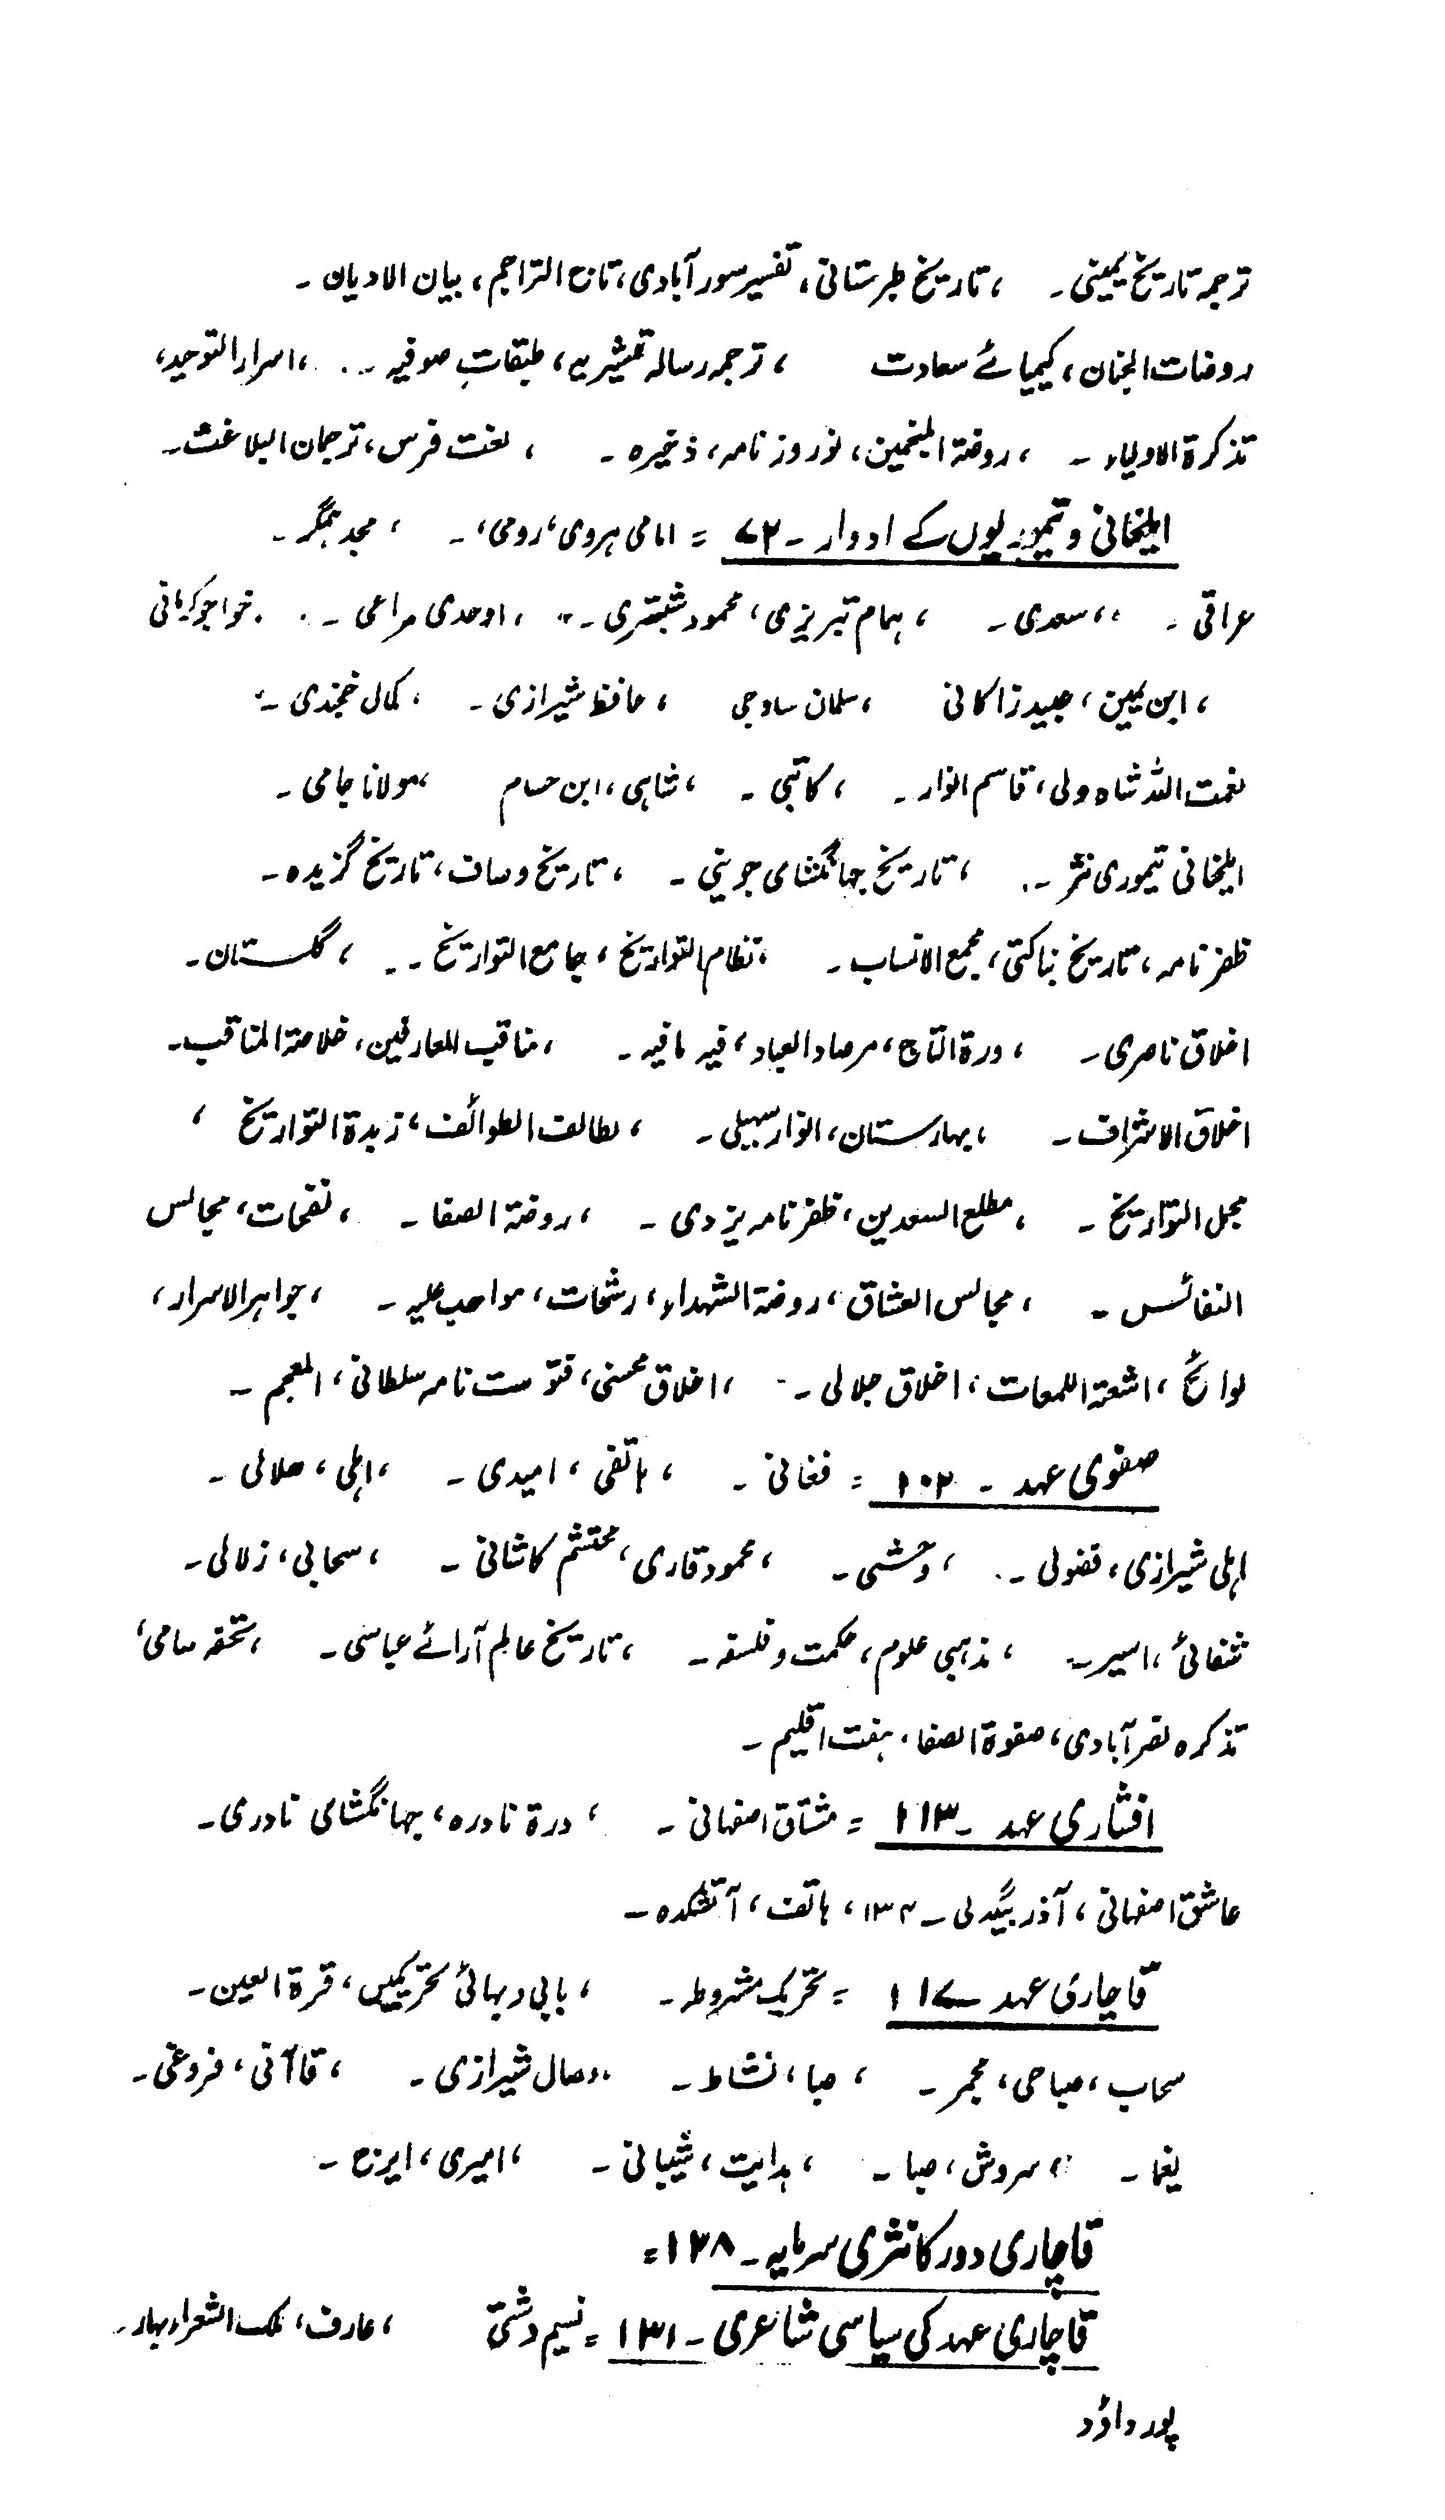 ترجمہ تاریخ یمینی ۔ ، تاریخ طبرستانی ، تفسیر سور آبادی ، تاج التراجم ، بیان الادیان ۔
روضات الجنان ، کیمیائے سعادت ، ترجمہ رسالہ قشیریہ ، طبقاتِ صوفیہ ۔ ، اسرار التوحید ،
تذکرۃ الاولیاء ۔ ، روضۃ المنجمین ، نوروز نامہ ، ذخیرہ ۔ ، لغت فرس ، ترجمان البلاغت ۔
ایلخانی و تیموریوں کے ادوار ۔ ۷۲ = امامی ہروی ، رومی ، ۔ ، مجد ہمگر ۔
عراقی ۔ ، سعدی ۔ ، ہمام تبریزی ، محمود شبستری ۔ ، اوحدی مراغی ۔ . خواجو کرمانی
، ابن یمین ، عبید زاکانی ، سلمان ساوجی ، حافظ شیرازی ۔ ، کمال خجندی ۔
نعمت اللہ شاہ ولی ، قاسم انوار ۔ ، کاتبی ۔ ، شاہی ، ابن حسام ، مولانا جامی ۔
ایلخانی تیموری نثر ۔ ، تاریخ جہانگشای جوینی ۔ ، تاریخ وصاف ، تاریخ گزیدہ ۔
ظفر نامہ ، تاریخ بناکتی ، مجمع الانساب ۔ ، نظام التواریخ ، جامع التواریخ ۔ ۔ ، گلستان ۔
اخلاق ناصری ۔ ، درۃ التاج ، مرصاد العباد ، فیہ مافیہ ۔ ، مناقب العارفین ، خلاصۃ المناقب ۔
اخلاق الاشراف ۔ ، بہارستان ، انوار سہیلی ۔ ، لطائف الطوائف ، زبدۃ التواریخ ،
مجمل التواریخ ۔ ، مطلع السعدین ، ظفر نامہ یزدی ۔ ، روضۃ الصفا ۔ ، نفحات ، مجالس
النفائس ۔ ، مجالس العشاق ، روضۃ الشہداء ، رشحات ، مواھب علیہ ۔ ، جواہر الاسرار ،
لوائح ، اشعۃ اللمعات ، اخلاق جلالی ۔ ، اخلاق محسنی ، فتوّت نامہ سلطانی ، المعجم ۔
صفوی عہد ۔ ۱۰۲ = فغانی ۔ ، ہاتفی ، امیدی ۔ ، اہلی ، ھلالی ۔
اہلی شیرازی ، فضولی ۔ ، وحشی ۔ ، محمود قاری ، محتشم کاشانی ۔ ، سحابی ، زلالی ۔
شفائی ، اسیر ۔ ، مذہبی علوم ، حکمت و فلسفہ ۔ ، تاریخ عالم آرائے عباسی ۔ ، تحفہ سامی ،
تذکرہ نصر آبادی ، صفوۃ الصفا ، ہفت اقلیم ۔
افشاری عہد ۔ ۱۱۳ = مشتاق اصفہانی ۔ ، درۃ نادرہ ، جہانگشای نادری ۔
عاشق اصفہانی ، آذر بیگدلی ۔ ۱۳۴ ، ہاتف ، آتشکدہ ۔
قاچاری عہد ۔ ۱۱۷ = تحریک مشروطہ ۔ ، بابی و بہائی تحریکیں ، قرۃ العین ۔
سحاب ، صباحی ، مجمر ۔ ، صبا ، نشاط ۔ ، وصال شیرازی ۔ ، قاآنی ، فروغی ۔
یغما ۔ ، سروش ، صبا ۔ ، ہدایت ، شیبانی ۔ ، امیری ، ایرج ۔
قاچاری دور کا نثری سرمایہ ۔ ۱۲۸ =
قاچاری عہد کی سیاسی شاعری ۔ ۱۳۱ = نسیم دشتی ، عارف ، ملک الشعراء بہار ۔
پور داؤد